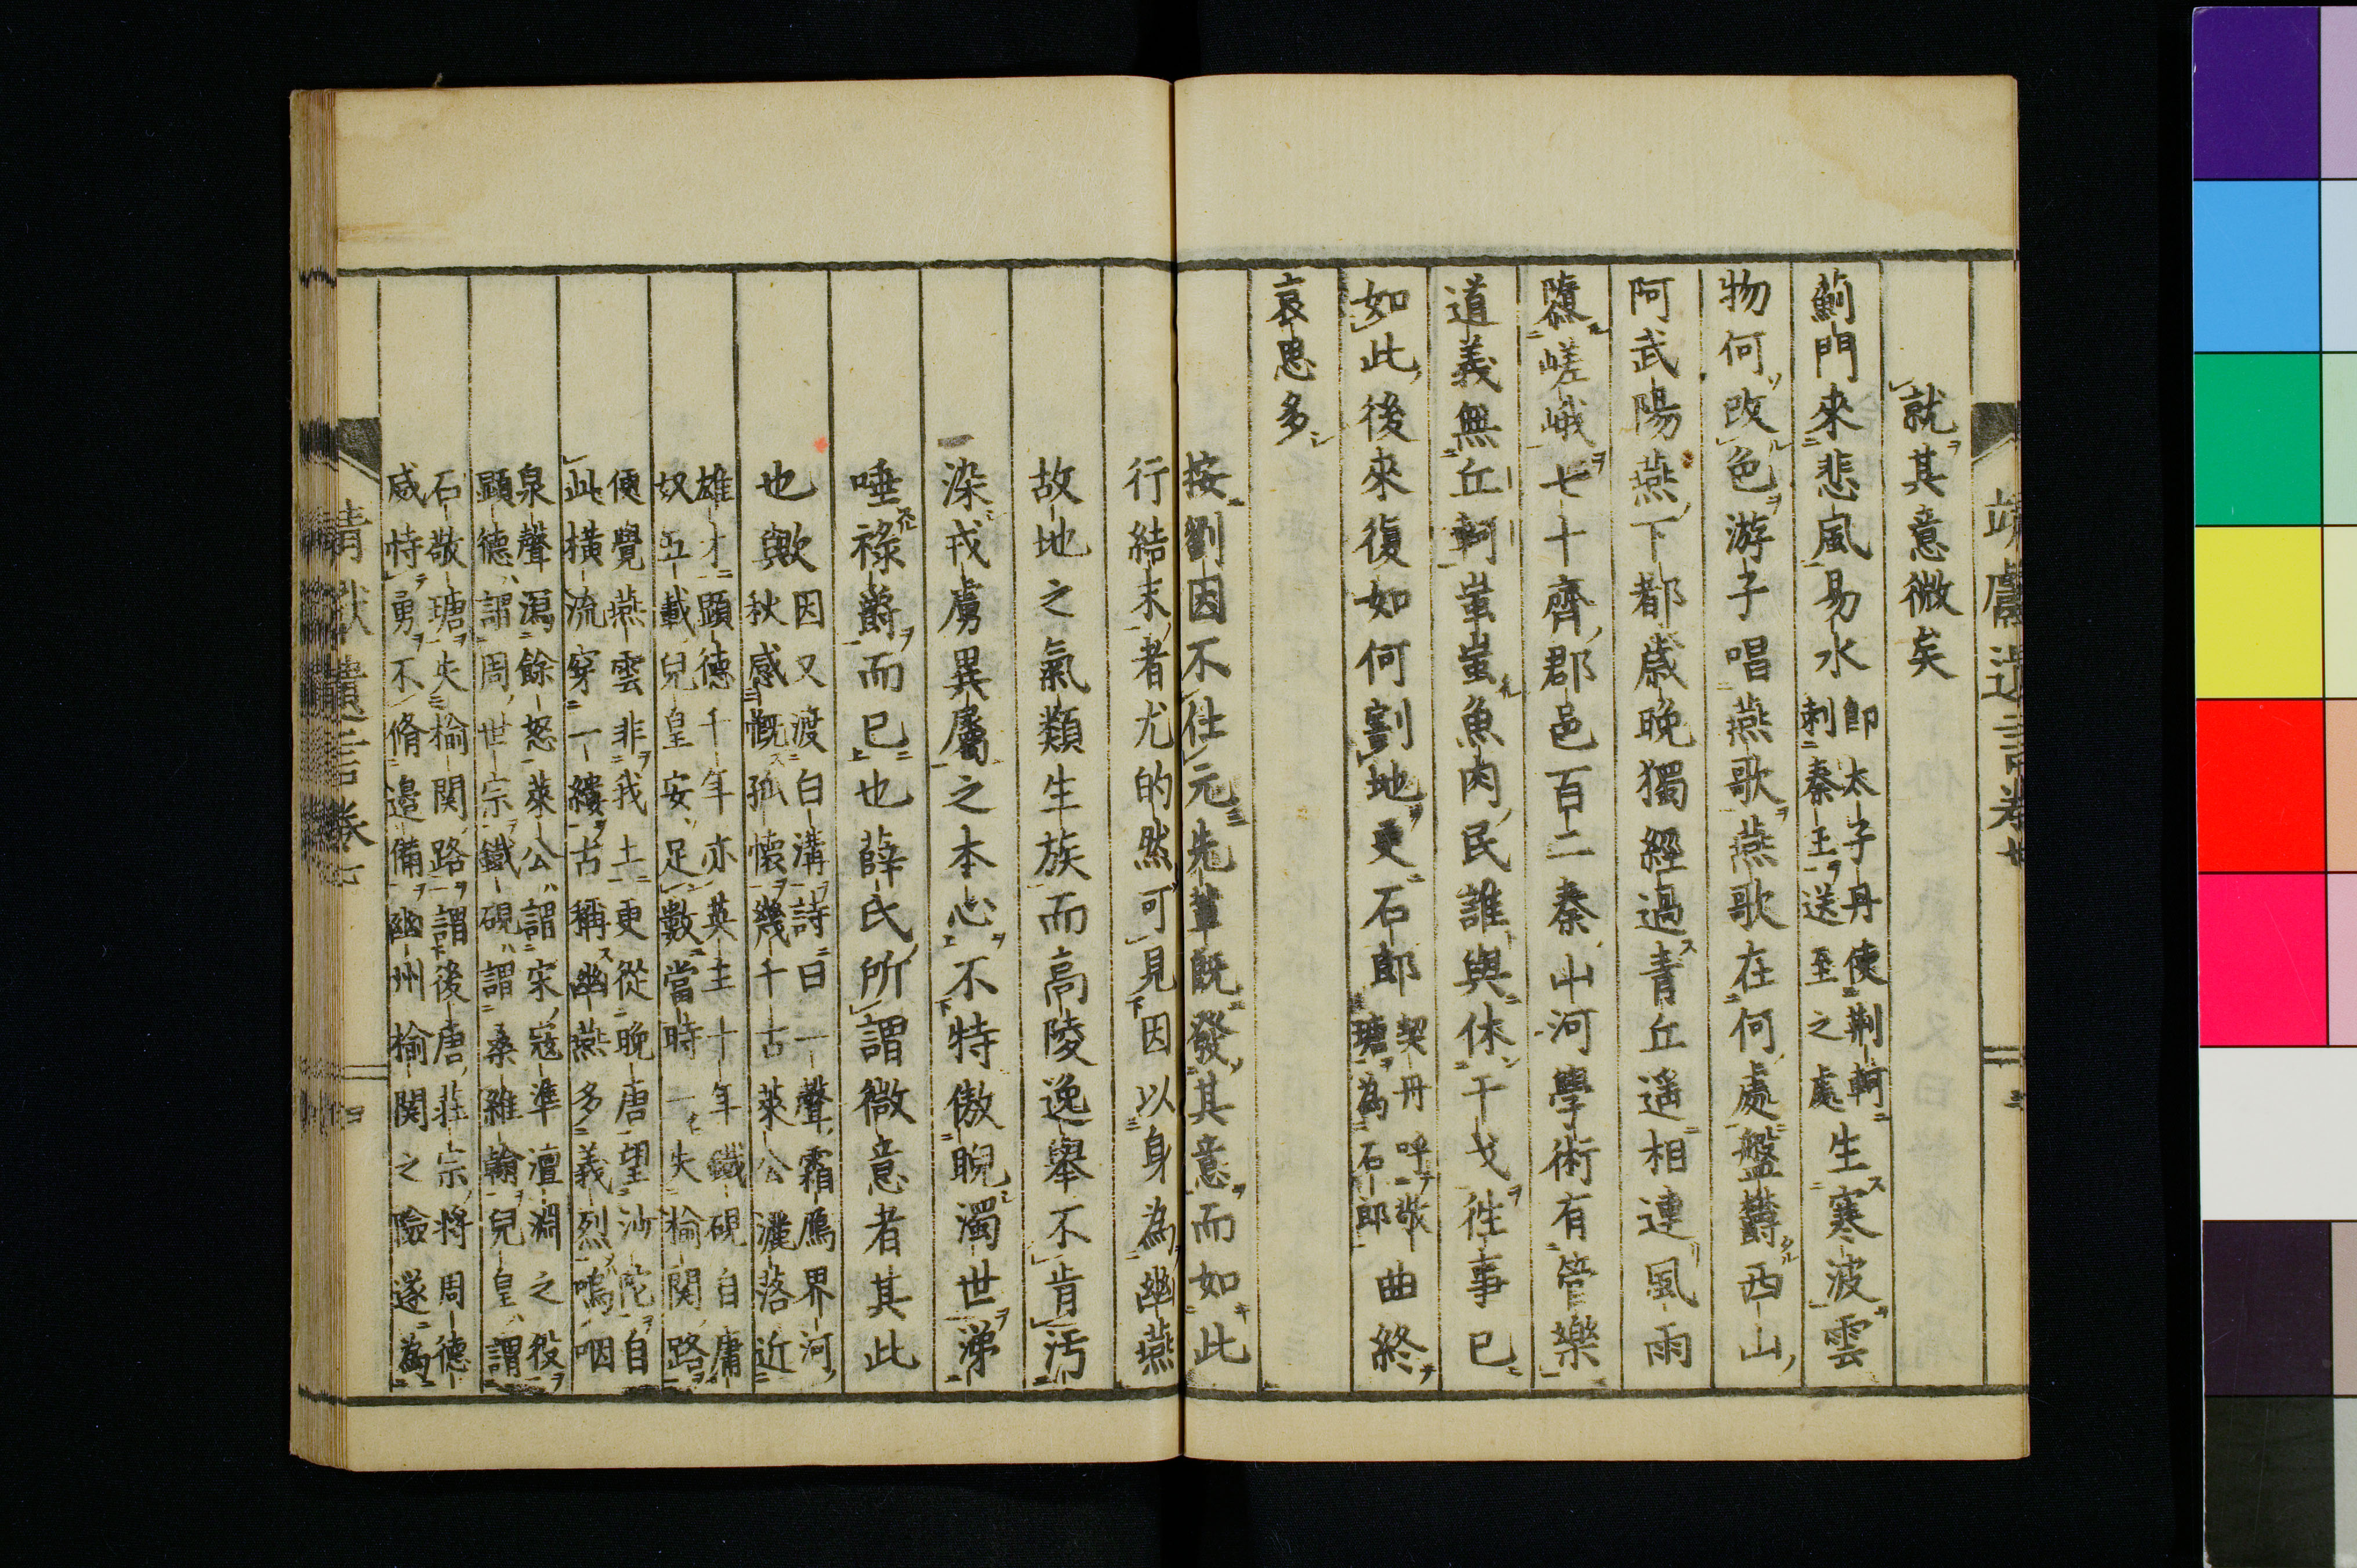 就其意微矣
薊門來悲風易水即太子丹使荆軻刺秦王送至之處生寒波雲
物何改色游子唱燕歌燕歌在何處盤欝西山
阿武陽燕下都歳晩獨經過青丘遥相連風雨
隳嵯峨七十齊郡邑百二秦山河學術有管樂
道義無丘軻蚩蚩魚肉民誰與休干戈徃事已
如此後來復如何割地更石郎契丹呼敬瑭為石郎曲終
哀思多
按劉因不仕元先輩既發其意而如此
行結末者尤的然可見因以身為幽燕
故地之氣類生族而高陵逸擧不肯汚
染戎虜異屬之本心不特傲睨濁世涕
唾祿爵而已也薛氏所謂微意者其此
也歟因又渡白溝詩曰一聲霜鴈界河秋感慨孤懷幾千古萊公灑落近
雄才顯德千年亦英主十年鐵硯自庸奴五載兒皇安足數當時一失榆関路
便覺燕雲非我土更從晩唐望沙陀自此横流穿一縷古稱幽燕多義烈嗚咽
泉聲瀉餘怒萊公謂宋寇準澶淵之役顯德謂周世宗鐵硯謂桑維翰兒皇謂
石敬瑭失榆関路謂後唐莊宗將周德威恃勇不脩邉備幽州榆関之險遂為
靖獻遺言卷七
四